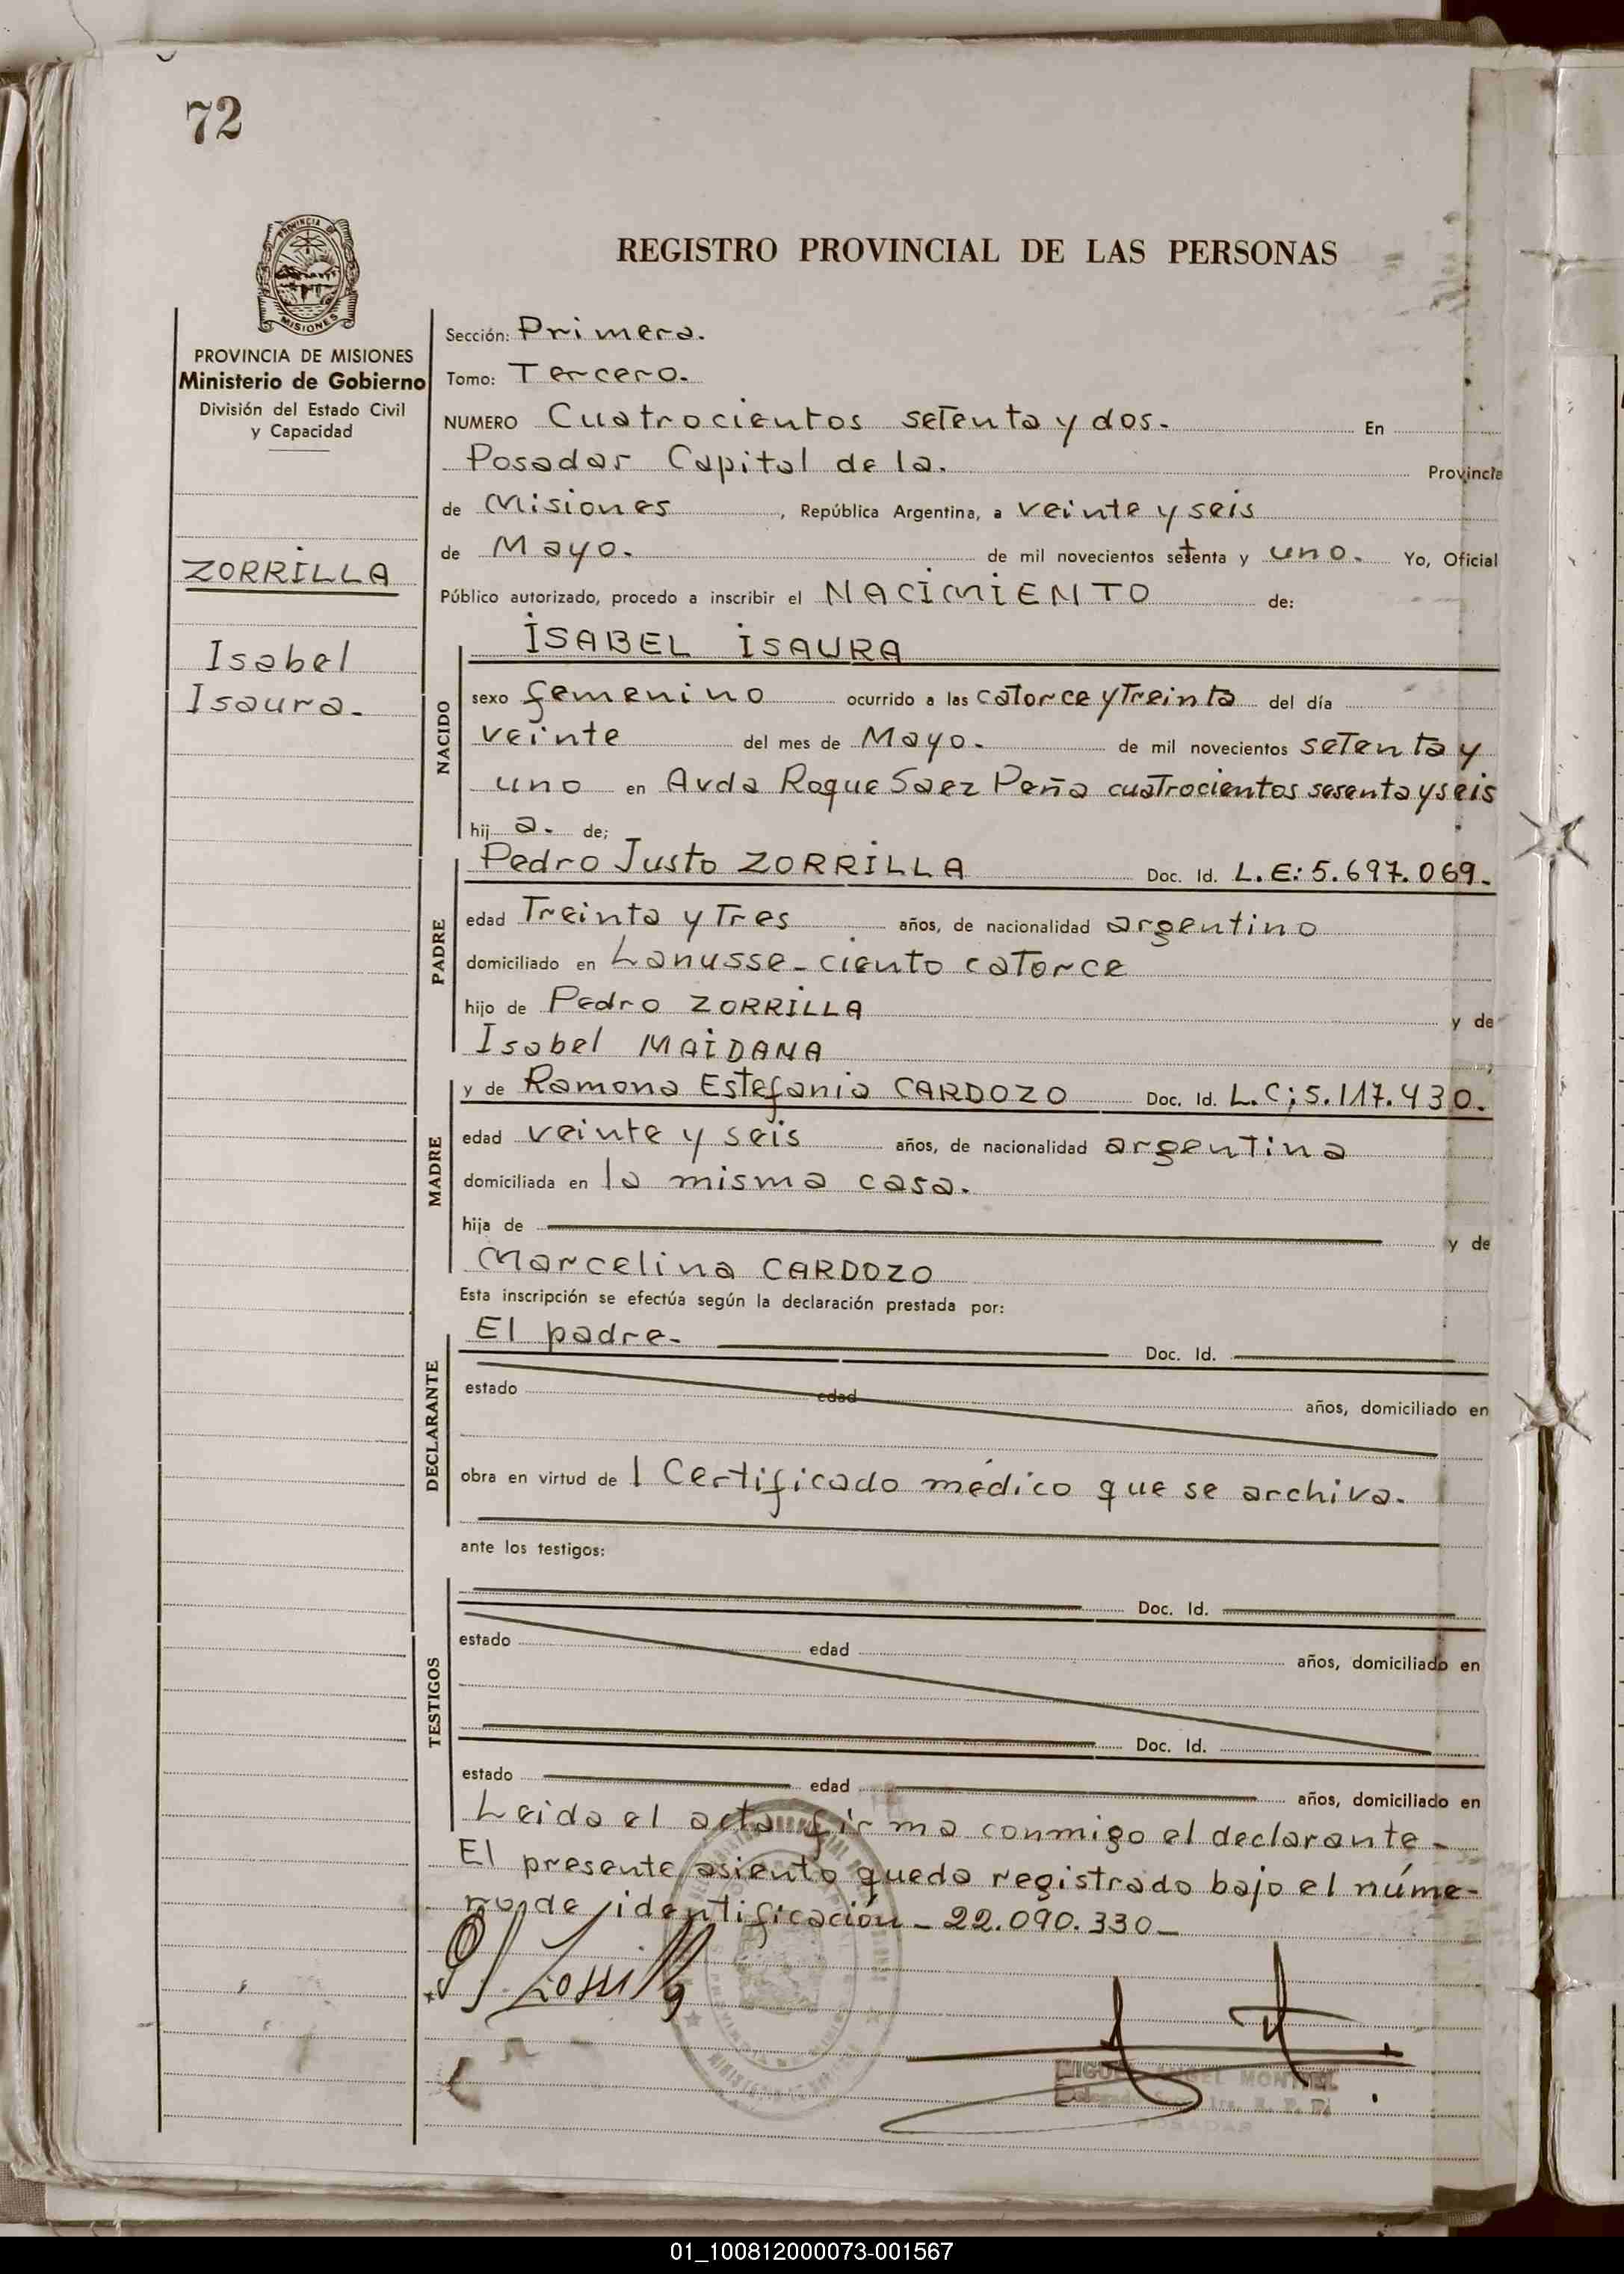 72
PROVINCIA
MISIONES
PROVINCIA DE MISIONES
Ministerio de Gobierno
División del Estado Civil
y Capacidad
ZORRILLA
Isabel
Isaura.
REGISTRO PROVINCIAL DE LAS PERSONAS
Sección: Primera.
Tomo: Tercero.
NUMERO Cuatrocientos setenta y dos. En
Posadas Capital de la. Provincia
de Misiones, República Argentina, a veinte y seis
de Mayo. de mil novecientos setenta y uno. Yo, Oficial
Público autorizado, procedo a inscribir el NACIMIENTO de:
ISABEL ISAURA
NACIDO
sexo femenino ocurrido a las catorce y Treinta del día
veinte del mes de Mayo. de mil novecientos setenta y
uno en Avda Roque Saez Peña cuatrocientos sesenta y seis
hij a. de;
PADRE
Pedro Justo ZORRILLA Doc. Id. L.E: 5.697.069.
edad Treinta y Tres años, de nacionalidad argentino
domiciliado en Lanusse - ciento catorce
hijo de Pedro ZORRILLA y de
Isabel MAIDANA
MADRE
y de Ramona Estefania CARDOZO Doc. Id. L.C; 5.117.430.
edad veinte y seis años, de nacionalidad argentina
domiciliada en la misma casa.
hija de y de
Marcelina CARDOZO
Esta inscripción se efectúa según la declaración prestada por:
DECLARANTE
El padre. Doc. Id.
estado edad años, domiciliado en
obra en virtud de 1 Certificado médico que se archiva.
ante los testigos:
TESTIGOS
Doc. Id.
estado edad años, domiciliado en
Doc. Id.
estado edad años, domiciliado en
Leida el acta firma conmigo el declarante -
El presente asiento queda registrado bajo el núme-
ro de identificación - 22.090.330 -
P J Zorrilla
MIGUEL ANGEL MONTIEL
POSADAS
01_100812000073-001567